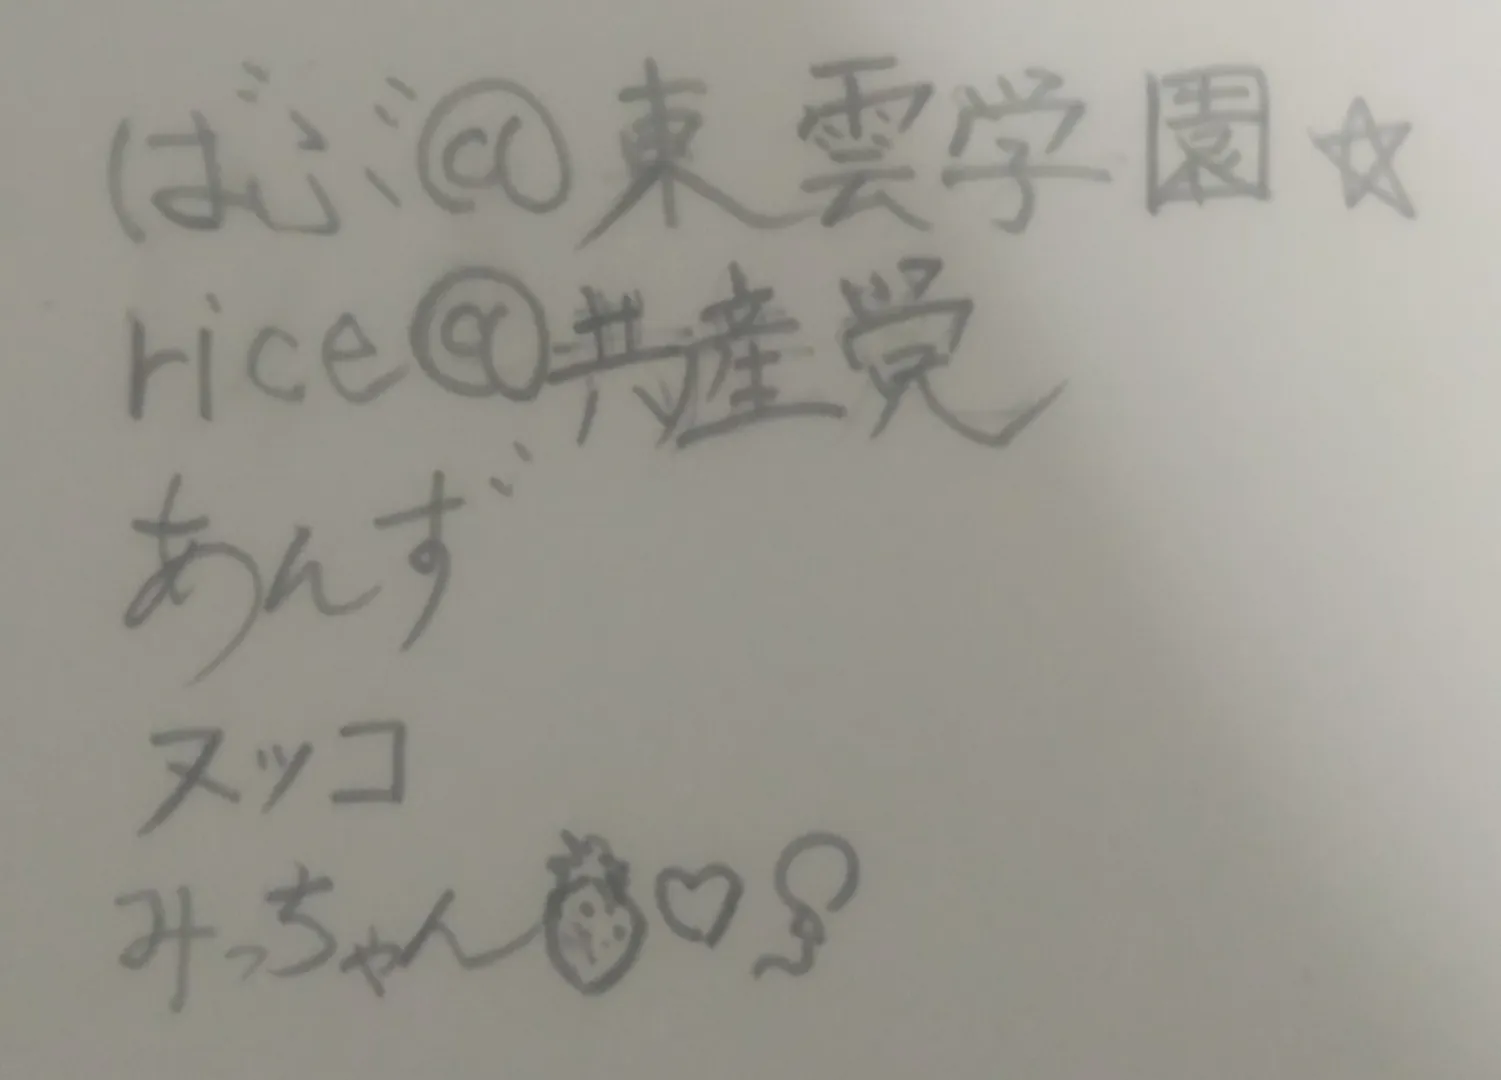 ばぶ@東雲学園☆
rice@共産党
あんず
ヌッコ
みっちゃん🍓♡🎈